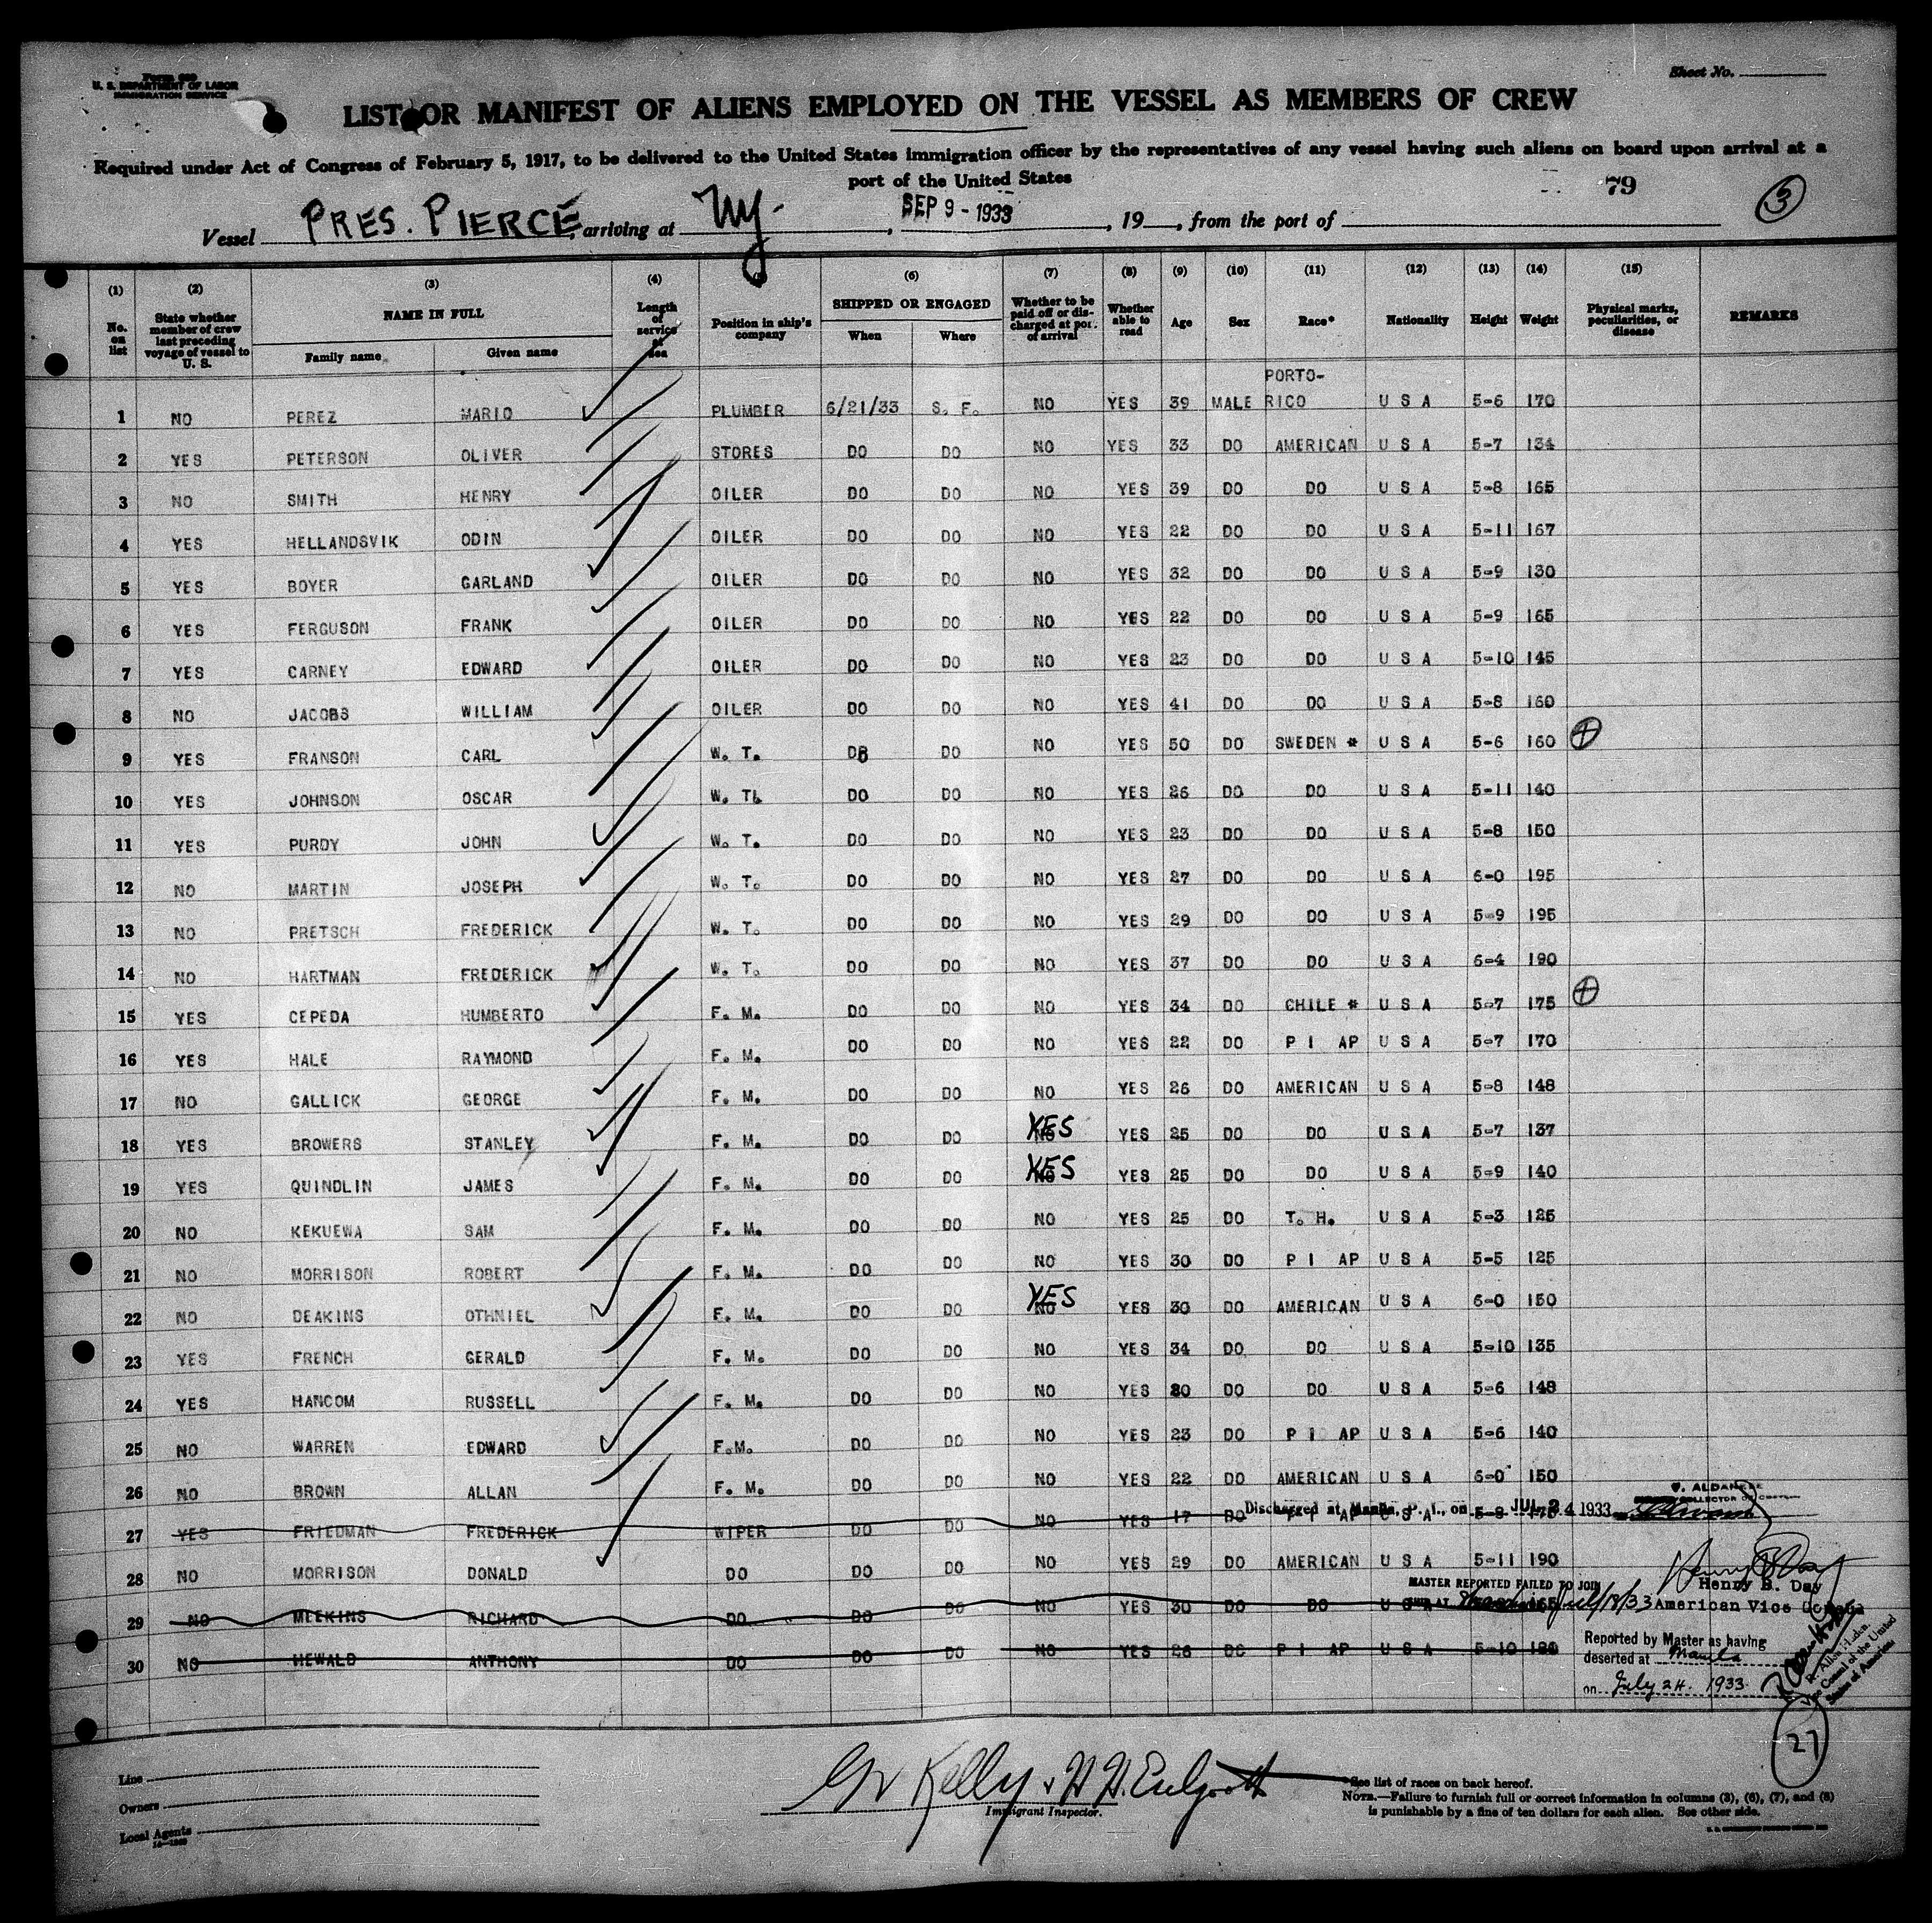 Form 689
U. S. DEPARTMENT OF LABOR
IMMIGRATION SERVICE
Sheet No.
LIST OR MANIFEST OF ALIENS EMPLOYED ON THE VESSEL AS MEMBERS OF CREW
Required under Act of Congress of February 5, 1917, to be delivered to the United States immigration officer by the representatives of any vessel having such aliens on board upon arrival at a
port of the United States
79 3
Vessel PRES. PIERCE, arriving at Ny. , SEP 9 - 1933, 19 , from the port of
(1) (2) (3) (4) (6) (7) (8) (9) (10) (11) (12) (13) (14) (15)
No. on list | State whether member of crew last preceding voyage of vessel to U. S. | NAME IN FULL Family name Given name | Length of service at sea | Position in ship's company | SHIPPED OR ENGAGED When Where | Whether to be paid off or discharged at port of arrival | Whether able to read | Age | Sex | Race* | Nationality | Height | Weight | Physical marks, peculiarities, or disease | REMARKS
1 NO PEREZ MARIO PLUMBER 6/21/33 S. F. NO YES 39 MALE PORTO-RICO U S A 5-6 170
2 YES PETERSON OLIVER STORES DO DO NO YES 33 DO AMERICAN U S A 5-7 134
3 NO SMITH HENRY OILER DO DO NO YES 39 DO DO U S A 5-8 165
4 YES HELLANDSVIK ODIN OILER DO DO NO YES 22 DO DO U S A 5-11 167
5 YES BOYER GARLAND OILER DO DO NO YES 32 DO DO U S A 5-9 130
6 YES FERGUSON FRANK OILER DO DO NO YES 22 DO DO U S A 5-9 165
7 YES CARNEY EDWARD OILER DO DO NO YES 23 DO DO U S A 5-10 145
8 NO JACOBS WILLIAM OILER DO DO NO YES 41 DO DO U S A 5-8 160
9 YES FRANSON CARL W. T. DO DO NO YES 50 DO SWEDEN * U S A 5-6 160
10 YES JOHNSON OSCAR W. T. DO DO NO YES 26 DO DO U S A 5-11 140
11 YES PURDY JOHN W. T. DO DO NO YES 23 DO DO U S A 5-8 150
12 NO MARTIN JOSEPH W. T. DO DO NO YES 27 DO DO U S A 6-0 195
13 NO PRETSCH FREDERICK W. T. DO DO NO YES 29 DO DO U S A 5-9 195
14 NO HARTMAN FREDERICK W. T. DO DO NO YES 37 DO DO U S A 6-4 190
15 YES CEPEDA HUMBERTO F. M. DO DO NO YES 34 DO CHILE * U S A 5-7 175
16 YES HALE RAYMOND F. M. DO DO NO YES 22 DO P I AP U S A 5-7 170
17 NO GALLICK GEORGE F. M. DO DO NO YES 26 DO AMERICAN U S A 5-8 148
18 YES BROWERS STANLEY F. M. DO DO YES YES 25 DO DO U S A 5-7 137
19 YES QUINDLIN JAMES F. M. DO DO YES YES 25 DO DO U S A 5-9 140
20 NO KEKUEWA SAM F. M. DO DO NO YES 25 DO T. H. U S A 5-3 125
21 NO MORRISON ROBERT F. M. DO DO NO YES 30 DO P I AP U S A 5-5 125
22 NO DEAKINS OTHNIEL F. M. DO DO YES YES 30 DO AMERICAN U S A 6-0 150
23 YES FRENCH GERALD F. M. DO DO NO YES 34 DO DO U S A 5-10 135
24 YES HANCOM RUSSELL F. M. DO DO NO YES 20 DO DO U S A 5-6 148
25 NO WARREN EDWARD F.M. DO DO NO YES 23 DO P I AP U S A 5-6 140
26 NO BROWN ALLAN F. M. DO DO NO YES 22 DO AMERICAN U S A 6-0 150
27 YES FRIEDMAN FREDERICK WIPER DO DO NO YES 17 DO Discharged at Manila, P. I., on JUL 24 1933
28 NO MORRISON DONALD DO DO DO NO YES 29 DO AMERICAN U S A 5-11 190
Henry B. Day
American Vice Consul
29 NO MEEKINS RICHARD DO DO DO NO YES 30 DO DO MASTER REPORTED FAILED TO JOIN
SHIP AT July/18/33
30 NO HEWALD ANTHONY DO DO DO NO YES 26 DO P I AP U S A 5-10
Reported by Master as having
deserted at Manila
on July 24. 1933
Vice Consul of the United
States of America
27
Line
Owners
Local Agents
Immigrant Inspector.
*See list of races on back hereof.
NOTE.—Failure to furnish full or correct information in columns (3), (6), (7), and (8)
is punishable by a fine of ten dollars for each alien. See other side.